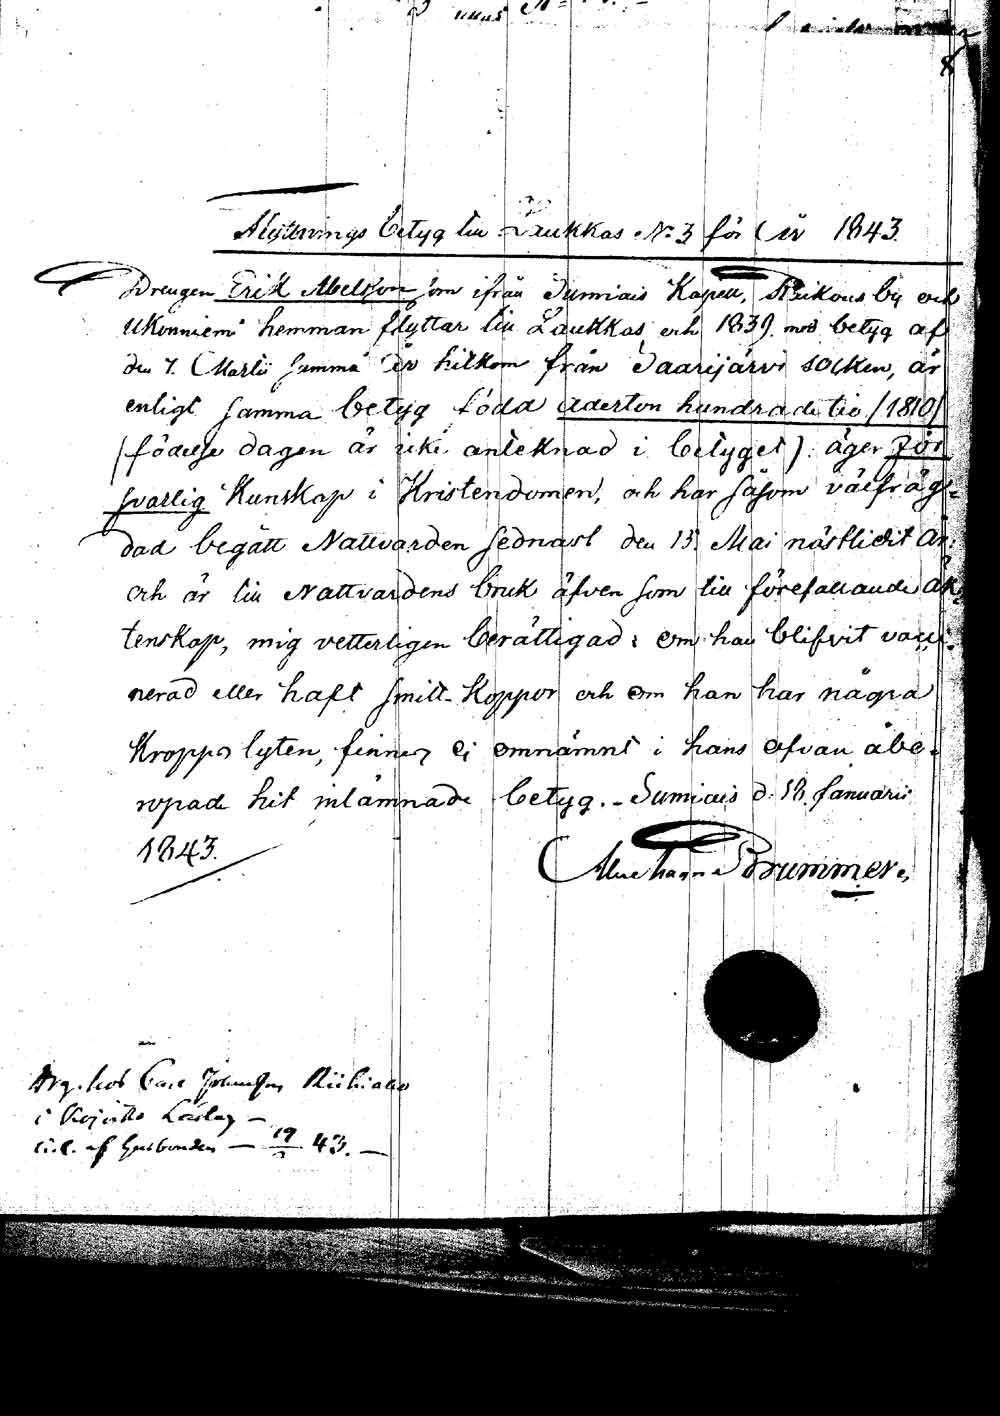 Flyttnings betyg till Laukkas No 3 för år 1843.
Drengen Erik Abelson, om ifrån Sumiais Kapell, by och
Ukonniemi hemman flyttar till Laukkas, och 1839 med betyg af
den 7. Martii samma år hitkom från Saarijärvi socken, är
enligt samma betyg född aderton hundrade tio /1810/
(födelse dagen är icke anteknad i betyget): äger för
svarlig Kunskap i Kristendomen, och har såsom välfräg-
dad begått Nattvarden sednast den 15. Mai nästlidit år:
och är till Nattvardens bruk äfven som till förefallande äk-
tenskap, mig vetterligen berättigad: om han blifvit vacci-
nerad eller haft smitt-Koppor och om han har några
Kropps lyten, finnes ej omnämnt i hans ofvan åbe-
ropade hit inlämnade betyg. - Sumiais d. 18. Januarii
1843.
Brummer.
hos Carl Johansson
i
af Husbonden — 19 43. —